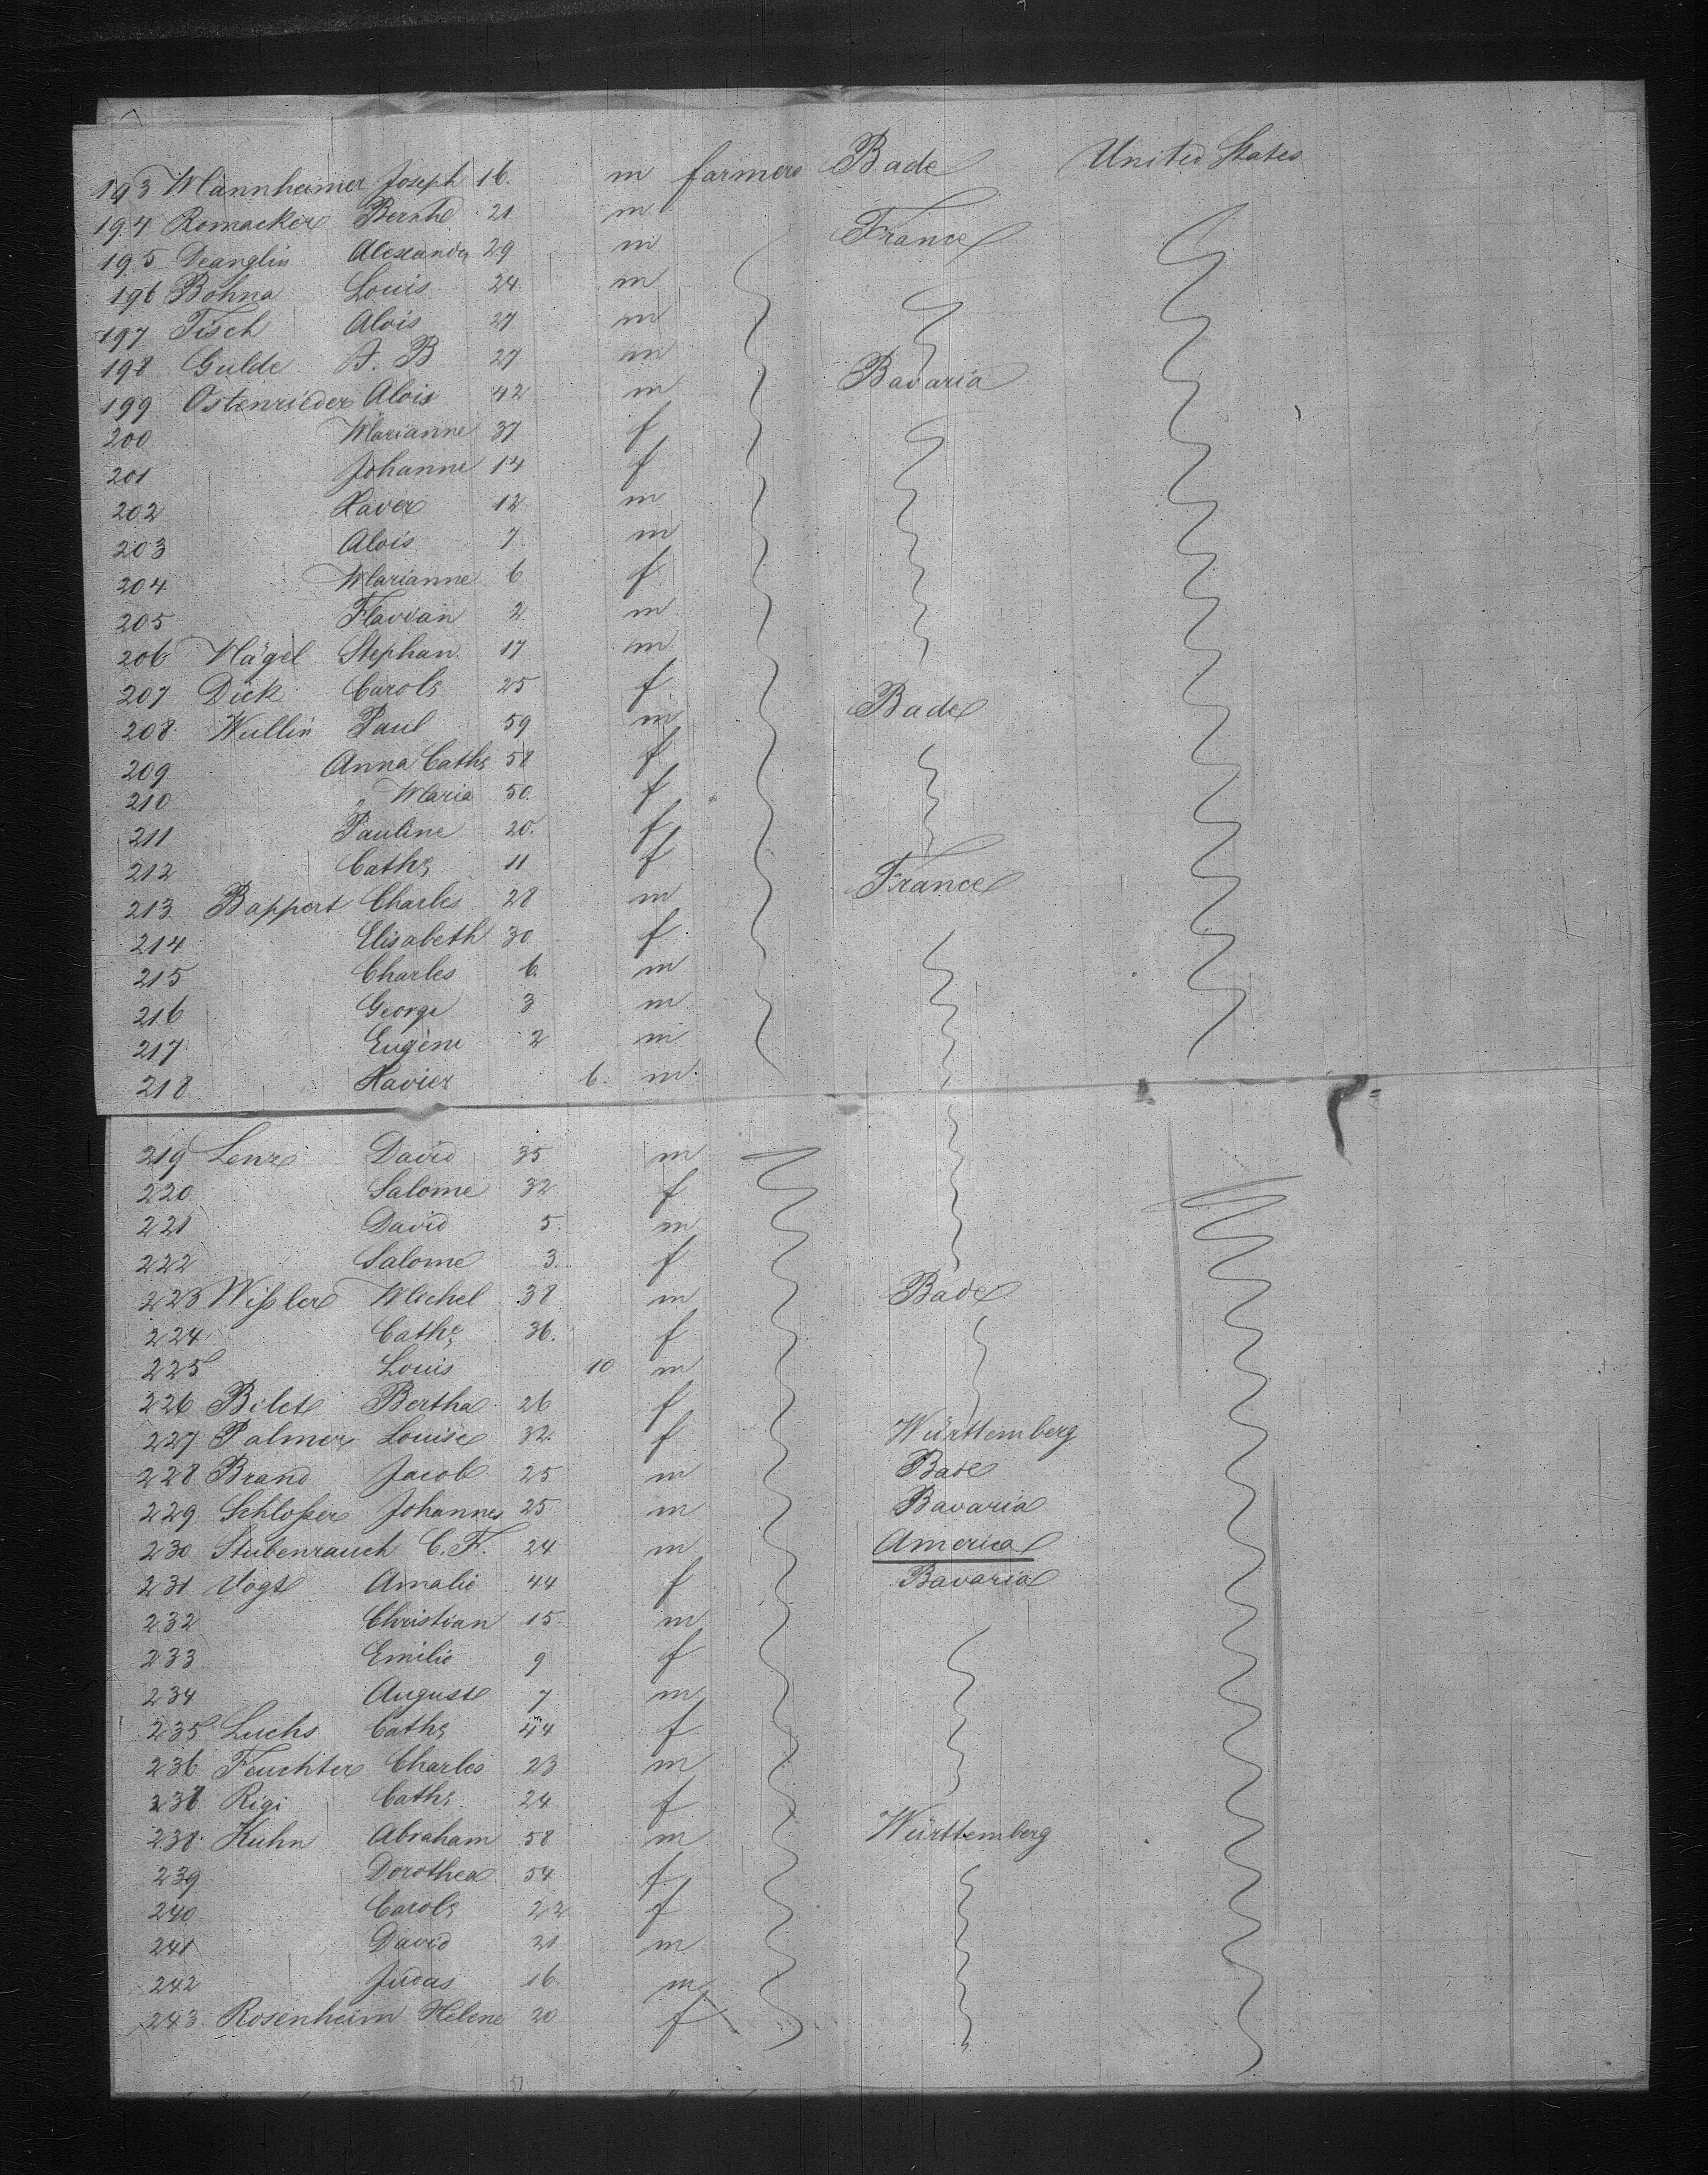 193 Mannheimer Joseph 16. m farmers Bade United States
194 Romacker Bernhd 21 m
195 Deanglin Alexander 29 m France
196 Bohna Louis 24 m
197 Fisch Alois 27 m
198 Gulde J. B 27 m
199 Ostenrieder Alois 42 m Bavaria
200 Marianne 37 f
201 Johanne 14 f
202 Xaver 12 m
203 Alois 7 m
204 Marianne 6 f
205 Flavian 2 m
206 Nägel Stephan 17 m
207 Dick Carole 25 f
208 Wullin Paul 59 m Bade
209 Anna Cathe 58 f
210 " Maria 50. f
211 Pauline 20. f
212 Cathe 11 f
213 Bappert Charles 28 m France
214 Elisabeth 30 f
215 Charles 6. m
216 George 3 m
217 Eugène 2 m
218 Xavier 6. m.
219 Lenz David 35 m
220 Salome 32 f
221 David 5. m
222 Salome 3. f
223 Wißler Michel 38 m Bade
224 Cathe 36. f
225 Louis 10 m
226 Bilet Bertha 26 f
227 Palmer Louise 32. f Württemberg
228 Brand Jacob 25 m Bade
229 Schloßer Johannes 25 m Bavaria
230 Stubenrauch C. F. 24 m America
231 Vogt Amalie 44 f Bavaria
232 Christian 15. m
233 Emilie 9 f
234 August 7 m
235 Luchs Cathe 44 f
236 Feuchter Charles 23 m
237 Rigi Cathe 24 f
238. Kuhn Abraham 58 m Württemberg
239 Dorothea 54 f
240 Carole 22 f
241 David 21 m
242 Judas 16. m
243 Rosenheim Helene 20 f